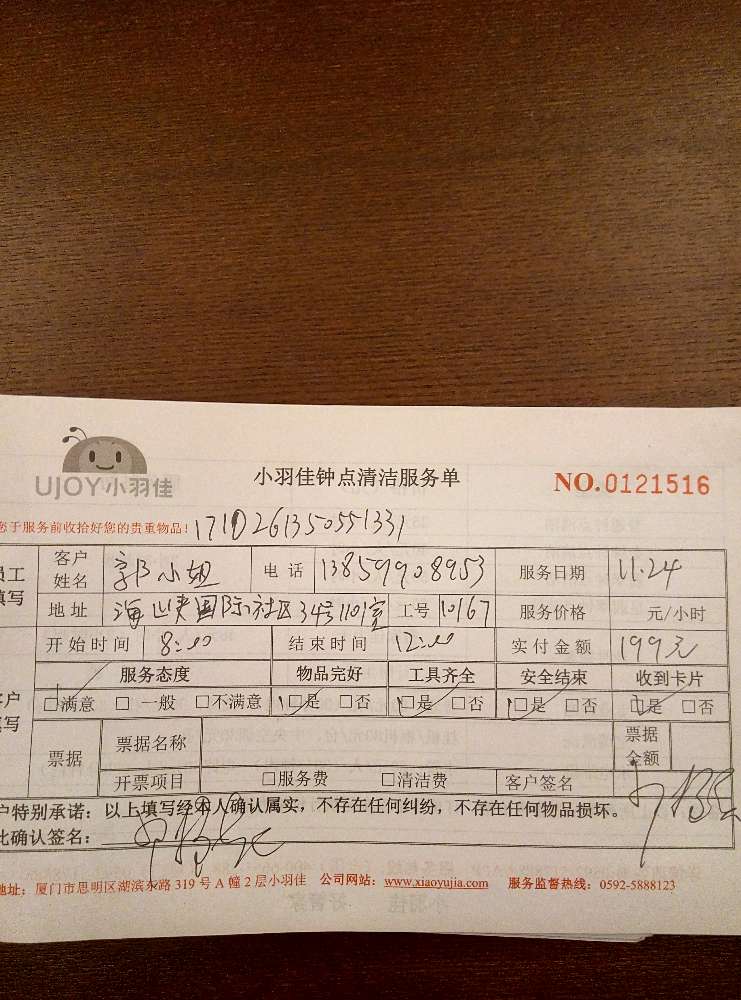 UJOY小羽佳
小羽佳钟点清洁服务单
NO.0121516
您于服务前收拾好您的贵重物品！171026135055 1331
员工填写
客户姓名 郭小姐 电话 13859908953 服务日期 11.24
地址 海峡国际社区34号1101室 工号 10167 服务价格 元/小时
开始时间 8:00 结束时间 12:00 实付金额 199元
服务态度 物品完好 工具齐全 安全结束 收到卡片
□满意 □一般 □不满意 □是 □否 □是 □否 □是 □否 □是 □否
客户填写
票据 票据名称 票据金额
开票项目 □服务费 □清洁费 客户签名
户特别承诺：以上填写经本人确认属实，不存在任何纠纷，不存在任何物品损坏。
此确认签名：
地址：厦门市思明区湖滨东路319号A幢2层小羽佳 公司网站：www.xiaoyujia.com 服务监督热线：0592-5888123